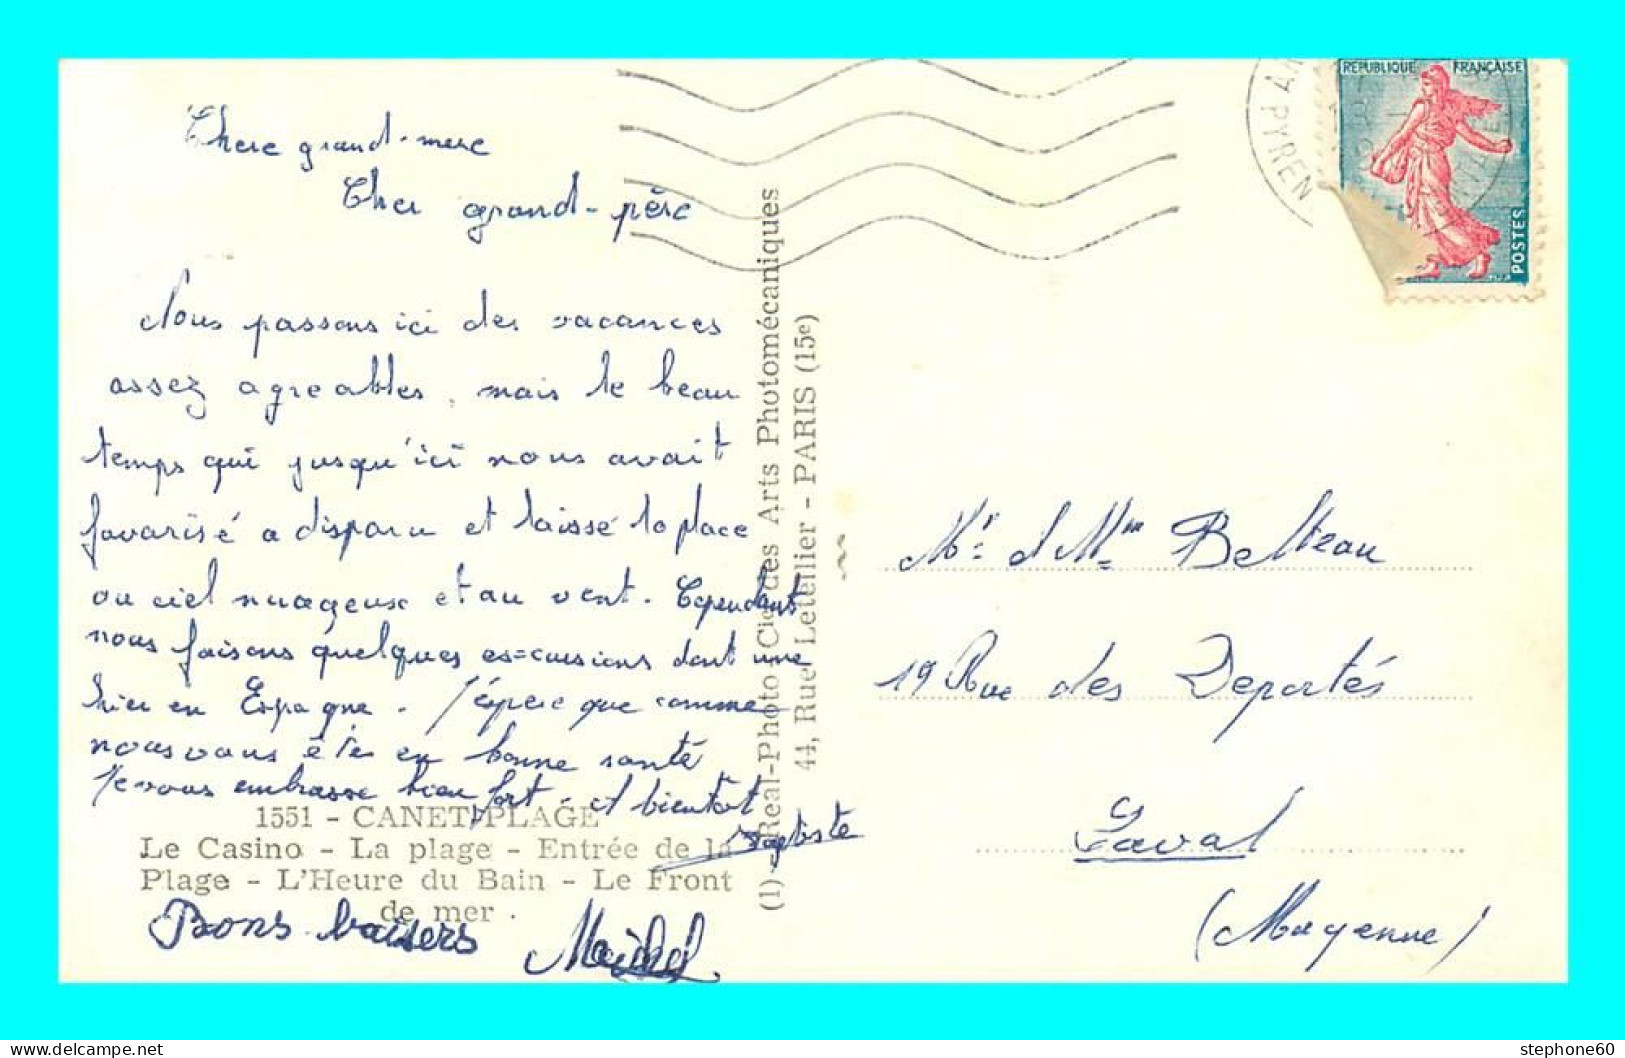 Chere grand-mere
Cher grand-père
Nous passons ici des vacances
assez agreables, mais le beau
temps qui jusqu'ici nous avait
favorisé a disparu et laissé la place
au ciel nuageux et au vent. Cependant
nous faisons quelques excursions dont une
hier en Espagne. J'éspere que comme
nous vous ête en bonne santé
Je vous embrasse bien fort. A bientot
Baptiste
Bons baisers
Michel
1551 - CANET-PLAGE
Le Casino - La plage - Entrée de la
Plage - L'Heure du Bain - Le Front
de mer .
(1) Real-Photo Cie des Arts Photomécaniques
44, Rue Letellier - PARIS (15e)
REPUBLIQUE FRANÇAISE
POSTES
PYREN
Mr et Mme Belleau
19 Rue des Deportés
Laval
(Mayenne)
stephone60